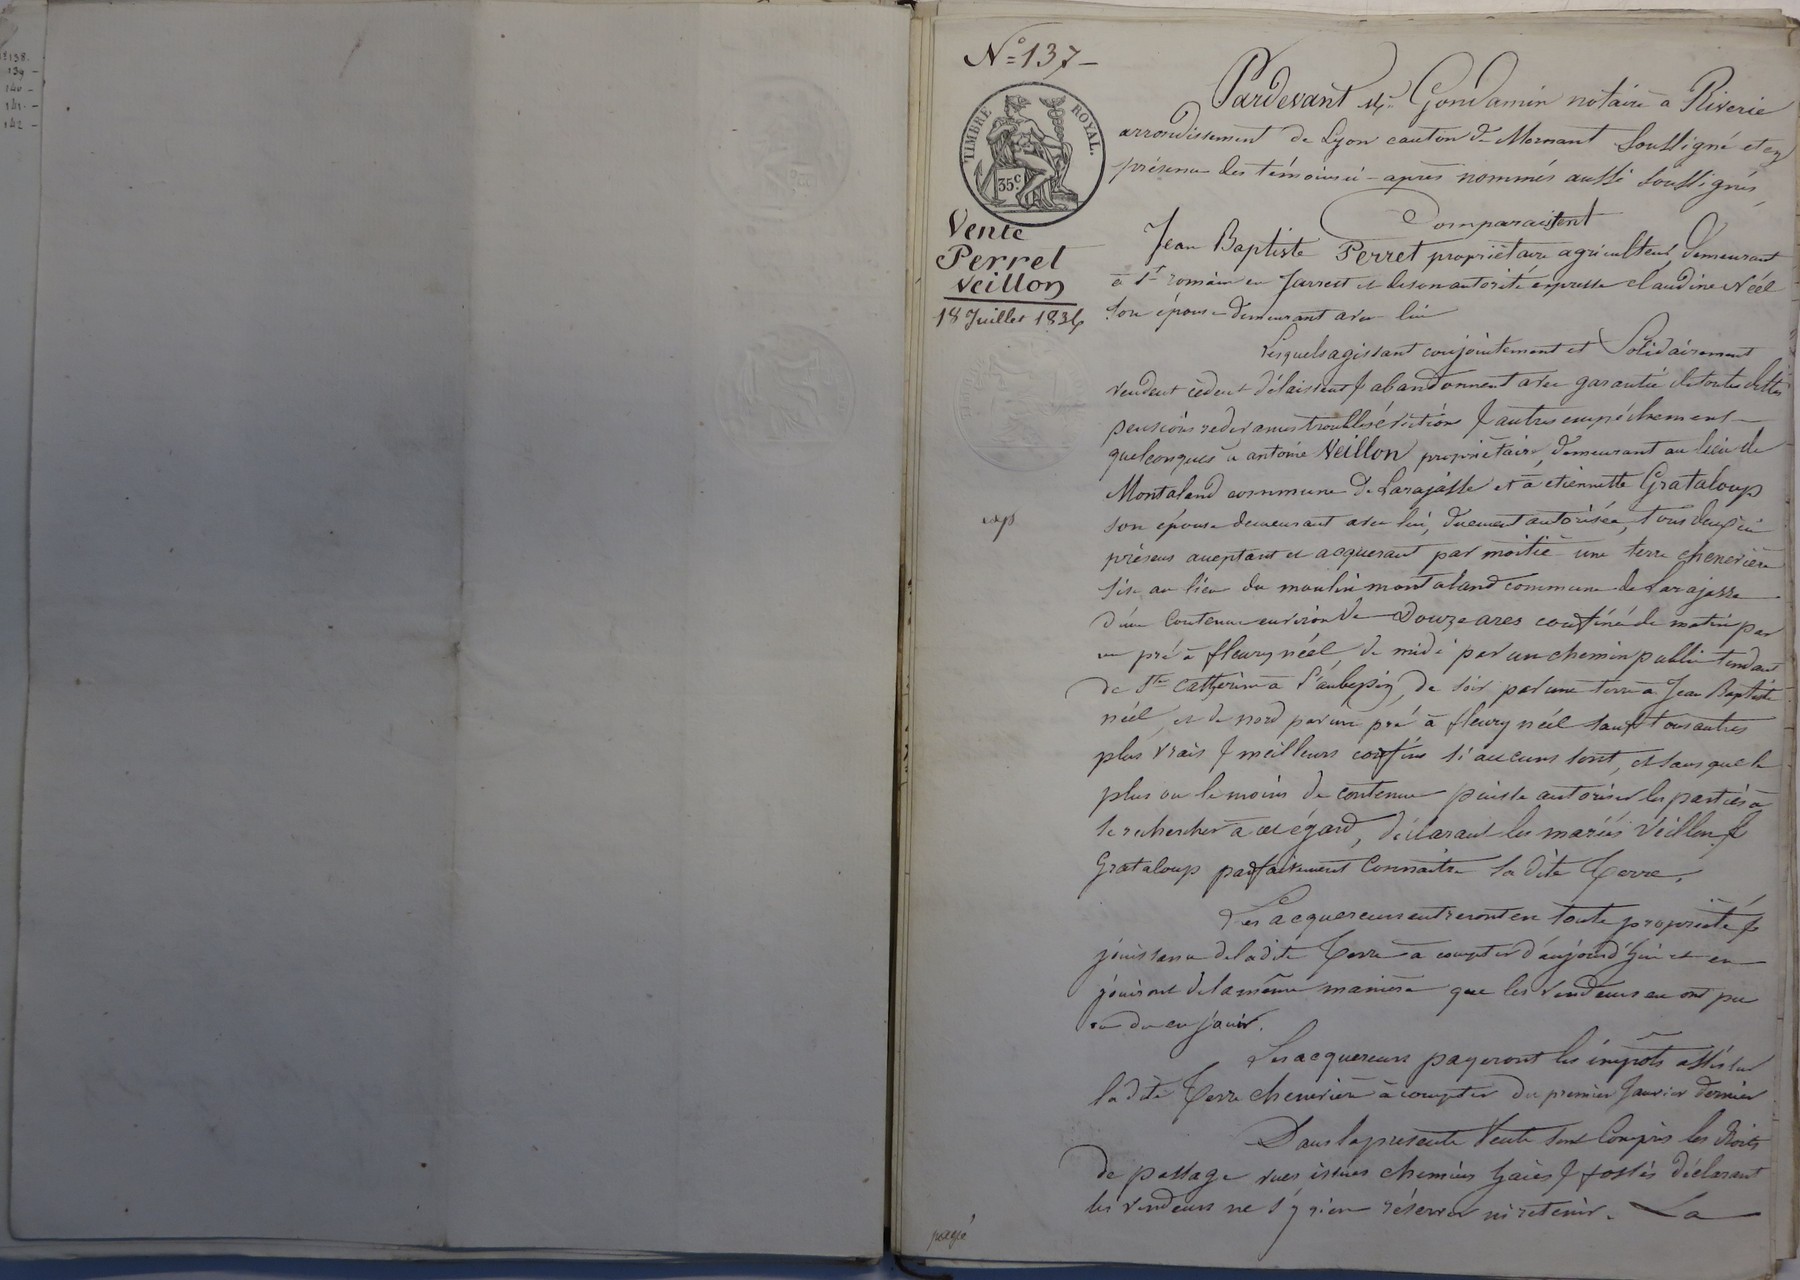 138.
139 -
140 -
141 -
142 -
N° 137 -
TIMBRE ROYAL.
35c
Vente
Perret
Veillon
18 Juillet 1834
exp
Pardevant Me Gondamin notaire à Riverie
arrondissement de Lyon canton de Mornant soussigné et en
présence des témoins ci-après nommés aussi soussignés,
Comparaissent
Jean Baptiste Perret propriétaire agriculteur, demeurant
à St romain en Jarrest et de son autorité expresse claudine Néel
son épouse demeurant avec lui
Lesquels agissant conjointement et Solidairement
vendent cèdent délaissent & abandonnent avec garantie de toutes dettes
pensions redevances troubles évictions & autres empêchements
quelconques à antoine Veillon propriétaire, demeurant au lieu de
Montaland commune de Larajasse et à etiennette Grataloup
son épouse demeurant avec lui, duement autorisée, tous deux ici
présens acceptant et acquerant par moitié une terre chenevière
sise au lieu du moulin montaland commune de Larajasse
d'une Contenue environ de Douze ares confiné de matin par
un pré à fleury néel de midi par un chemin public tendant
de Ste Catherine à l'aubepin, de soir par une terre à Jean Baptiste
néel et de nord par un pré à fleury néel sauf tous autres
plus vrais & meilleurs confins si aucuns sont, et sans que le
plus ou le moins de contenue puisse autoriser les parties à
se rechercher à cet égard, déclarant les mariés Veillon &
Grataloup parfaitement Connaitre la dite Terre.
Les acquereurs entreront en toute propriété &
jouissance de la dite Terre à compter d'aujourd'hui et en
jouiront de la même manière que les vendeurs en ont pu
ou du en jouir.
Les acquereurs payeront les impôts assis sur
la dite Terre chenevière à compter du premier Janvier dernier
Dans la presente Vente sont Compris les droits
de passage vues issues chemins haies & fossés déclarant
les vendeurs ne s'y rien réserver ni retenir. La